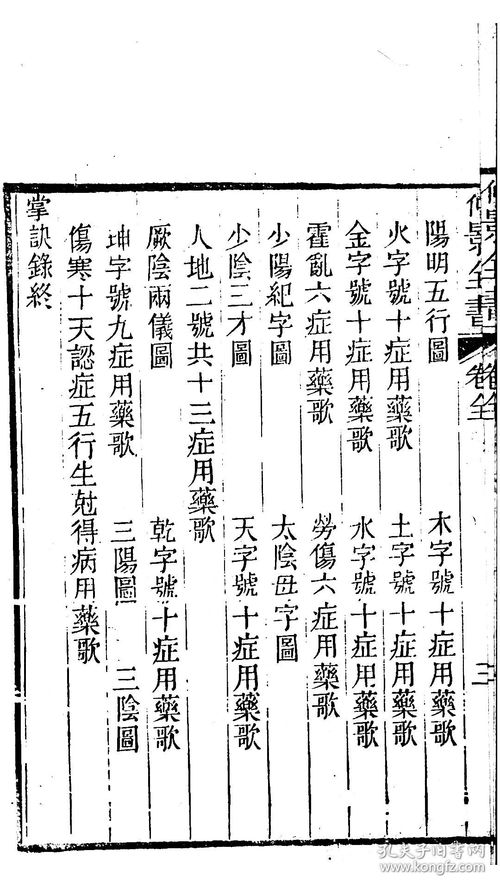 仲景全書 卷全 三
陽明五行圖 木字號十症用藥歌
火字號十症用藥歌 土字號十症用藥歌
金字號十症用藥歌 水字號十症用藥歌
霍亂六症用藥歌 勞傷六症用藥歌
少陽紀字圖 太陰毋字圖
少陰三才圖 天字號十症用藥歌
人地二號共十三症用藥歌
厥陰兩儀圖 乾字號十症用藥歌
坤字號九症用藥歌 三陽圖 三陰圖
傷寒十天認症五行生尅得病用藥歌
掌訣錄終
孔夫子旧书网
www.kongfz.com